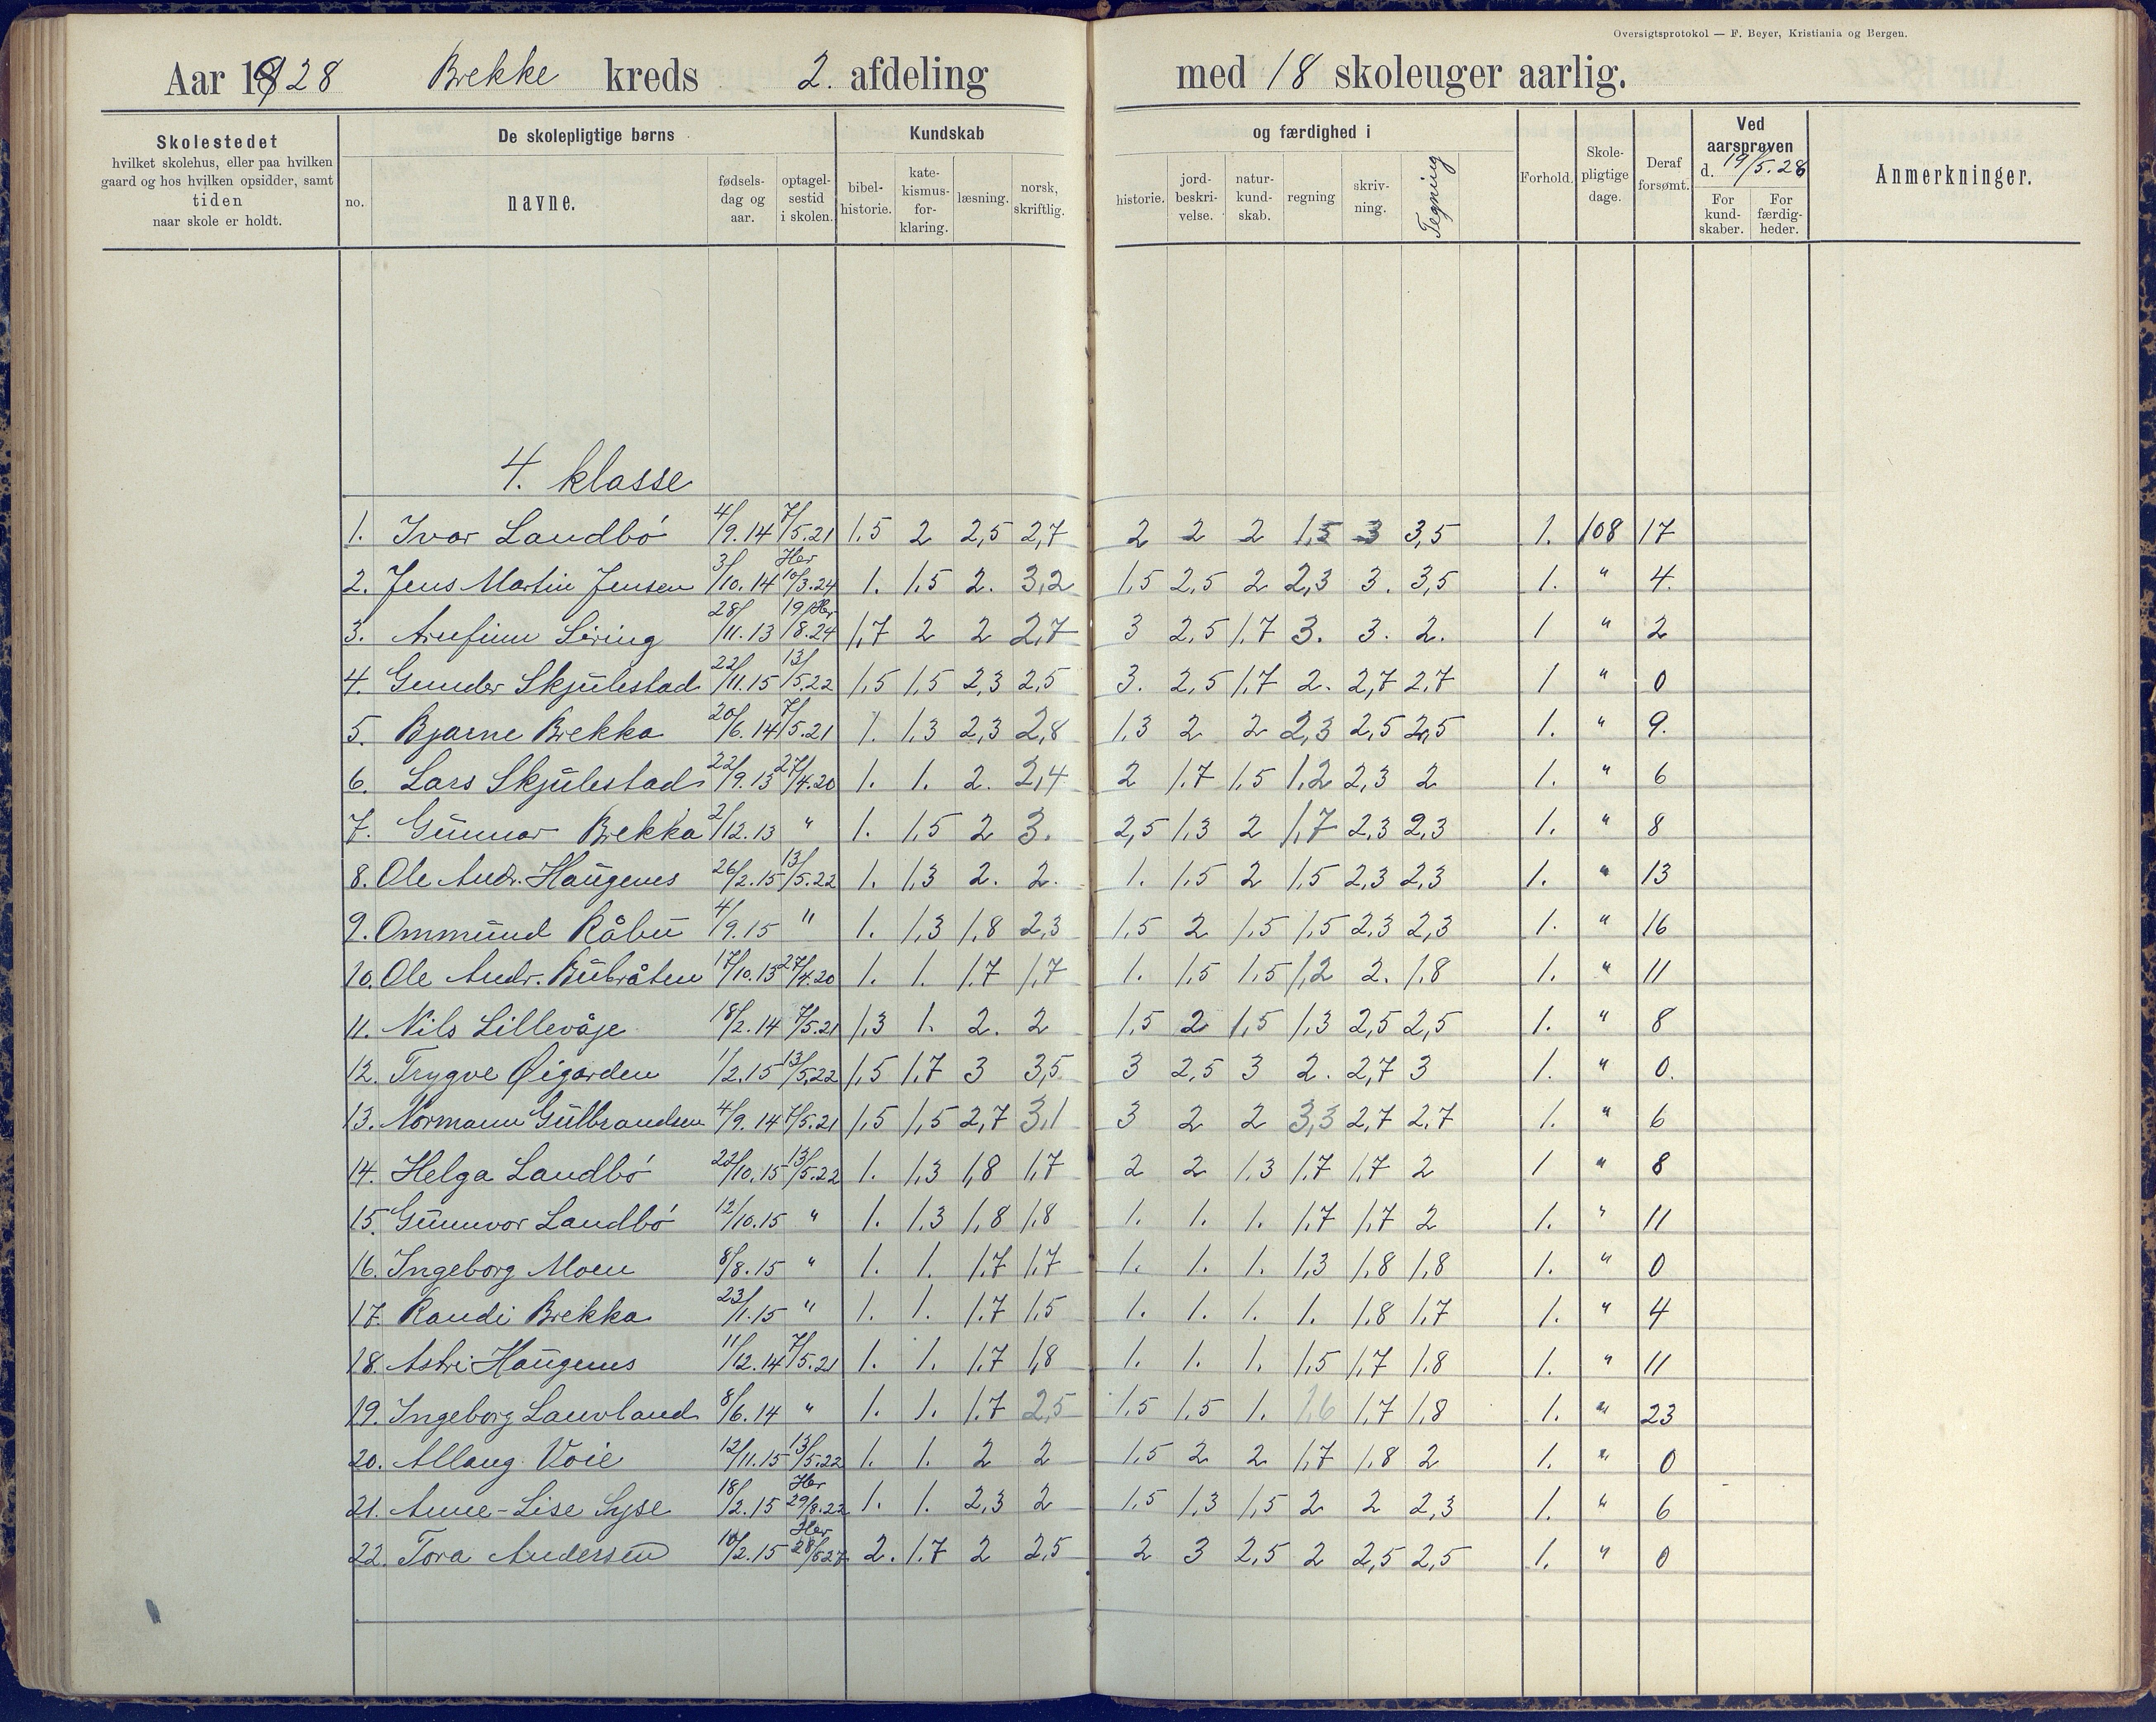 Oversigtsprotokol — F. Beyer, Kristiania og Bergen.
Aar 1928 Brekke kreds 2. afdeling med 18 skoleuger aarlig.
Skolestedet hvilket skolehus, eller paa hvilken gaard og hos hvilken opsidder, samt tiden naar skole er holdt.
De skolepligtige børns
no. navne. fødsels-dag og aar. optagel-sestid i skolen.
Kundskab og færdighed i
bibel-historie. kate-kismus-for-klaring. læsning. norsk, skriftlig. historie. jord-beskri-velse. natur-kund-skab. regning skriv-ning. Tegning
Forhold. Skole-pligtige dage. Deraf forsømt.
Ved aarsprøven d. 19/5.28
For kund-skaber. For færdig-heder.
Anmerkninger.
4. klasse
1. Ivar Landbö 4/9.14 7/5.21 1,5 2 2,5 2,7 2 2 2 1,5 3 3,5 1. 108 17
2. Jens Martin Jensen 3/10.14 Her 10/3.24 1. 1,5 2. 3,2 1,5 2,5 2 2,3 3. 3,5 1. " 4.
3. Arnfinn Siring 28/11.13 19/8.24 Her 1,7 2 2 2,7 3 2,5 1,7 3. 3. 2. 1 " 2
4. Gunder Skjulestad 22/11.15 13/5.22 1,5 1,5 2,3 2,5 3. 2,5 1,7 2. 2,7 2,7 1 " 0
5. Bjarne Brekka 20/6.14 7/5.21 1. 1,3 2,3 2,8 1,3 2 2 2,3 2,5 2,5 1. " 9.
6. Lars Skjulestad 22/9.13 27/4.20 1. 1. 2. 2,4 2 1,7 1,5 1,2 2,3 2 1. " 6
7. Gunnar Brekka 2/12.13 " 1. 1,5 2 3. 2,5 1,3 2 1,7 2,3 2,3 1. " 8
8. Ole Andr. Haugenes 26/2.15 13/5.22 1. 1,3 2. 2. 1. 1,5 2 1,5 2,3 2,3 1. " 13
9. Ommund Råbu 4/9.15 " 1. 1,3 1,8 2,3 1,5 2 1,5 1,5 2,3 2,3 1. " 16
10. Ole Andr. Bubråten 17/10.13 27/4.20 1. 1. 1,7 1,7 1. 1,5 1,5 1,2 2. 1,8 1. " 11
11. Nils Lillevåje 18/2.14 7/5.21 1,3 1. 2. 2 1,5 2 1,5 1,3 2,5 2,5 1. " 8
12. Trygve Øigarden 1/2.15 13/5.22 1,5 1,7 3 3,5 3 2,5 3 2. 2,7 3 1. " 0.
13. Normann Gulbrandsen 4/9.14 7/5.21 1,5 1,5 2,7 3,1 3 2 2 3,3 2,7 2,7 1. " 6
14. Helga Landbö 22/10.15 13/5.22 1. 1,3 1,8 1,7 2 2 1,3 1,7 1,7 2 1 " 8
15. Gunnvor Landbö 12/10.15 " 1. 1,3 1,8 1,8 1. 1. 1. 1,7 1,7 2 1. " 11
16. Ingeborg Moen 8/8.15 " 1. 1. 1,7 1,7 1. 1. 1. 1,3 1,8 1,8 1. " 0
17. Randi Brekka 23/1.15 " 1. 1. 1,7 1,5 1. 1. 1. 1. 1,8 1,7 1. " 4
18. Astri Haugenes 11/12.14 7/5.21 1. 1. 1,7 1,8 1. 1. 1. 1,5 1,7 1,8 1. " 11
19. Ingeborg Lauvland 8/6.14 " 1. 1. 1,7 2,5 1,5 1,5 1. 1,6 1,7 1,8 1. " 23
20. Allaug Voie 12/11.15 13/5.22 1. 1. 2 2 1,5 2 2 1,7 1,8 2 1. " 0
21. Anne-Lise Syse 18/2.15 Her 29/8.22 1. 1. 2,3 2 1,5 1,3 1,5 2 2 2,3 1. " 6
22. Tora Andersen 10/2.15 Her 28/5.27 2. 1,7 2 2,5 2 3 2,5 2 2,5 2,5 1. " 0